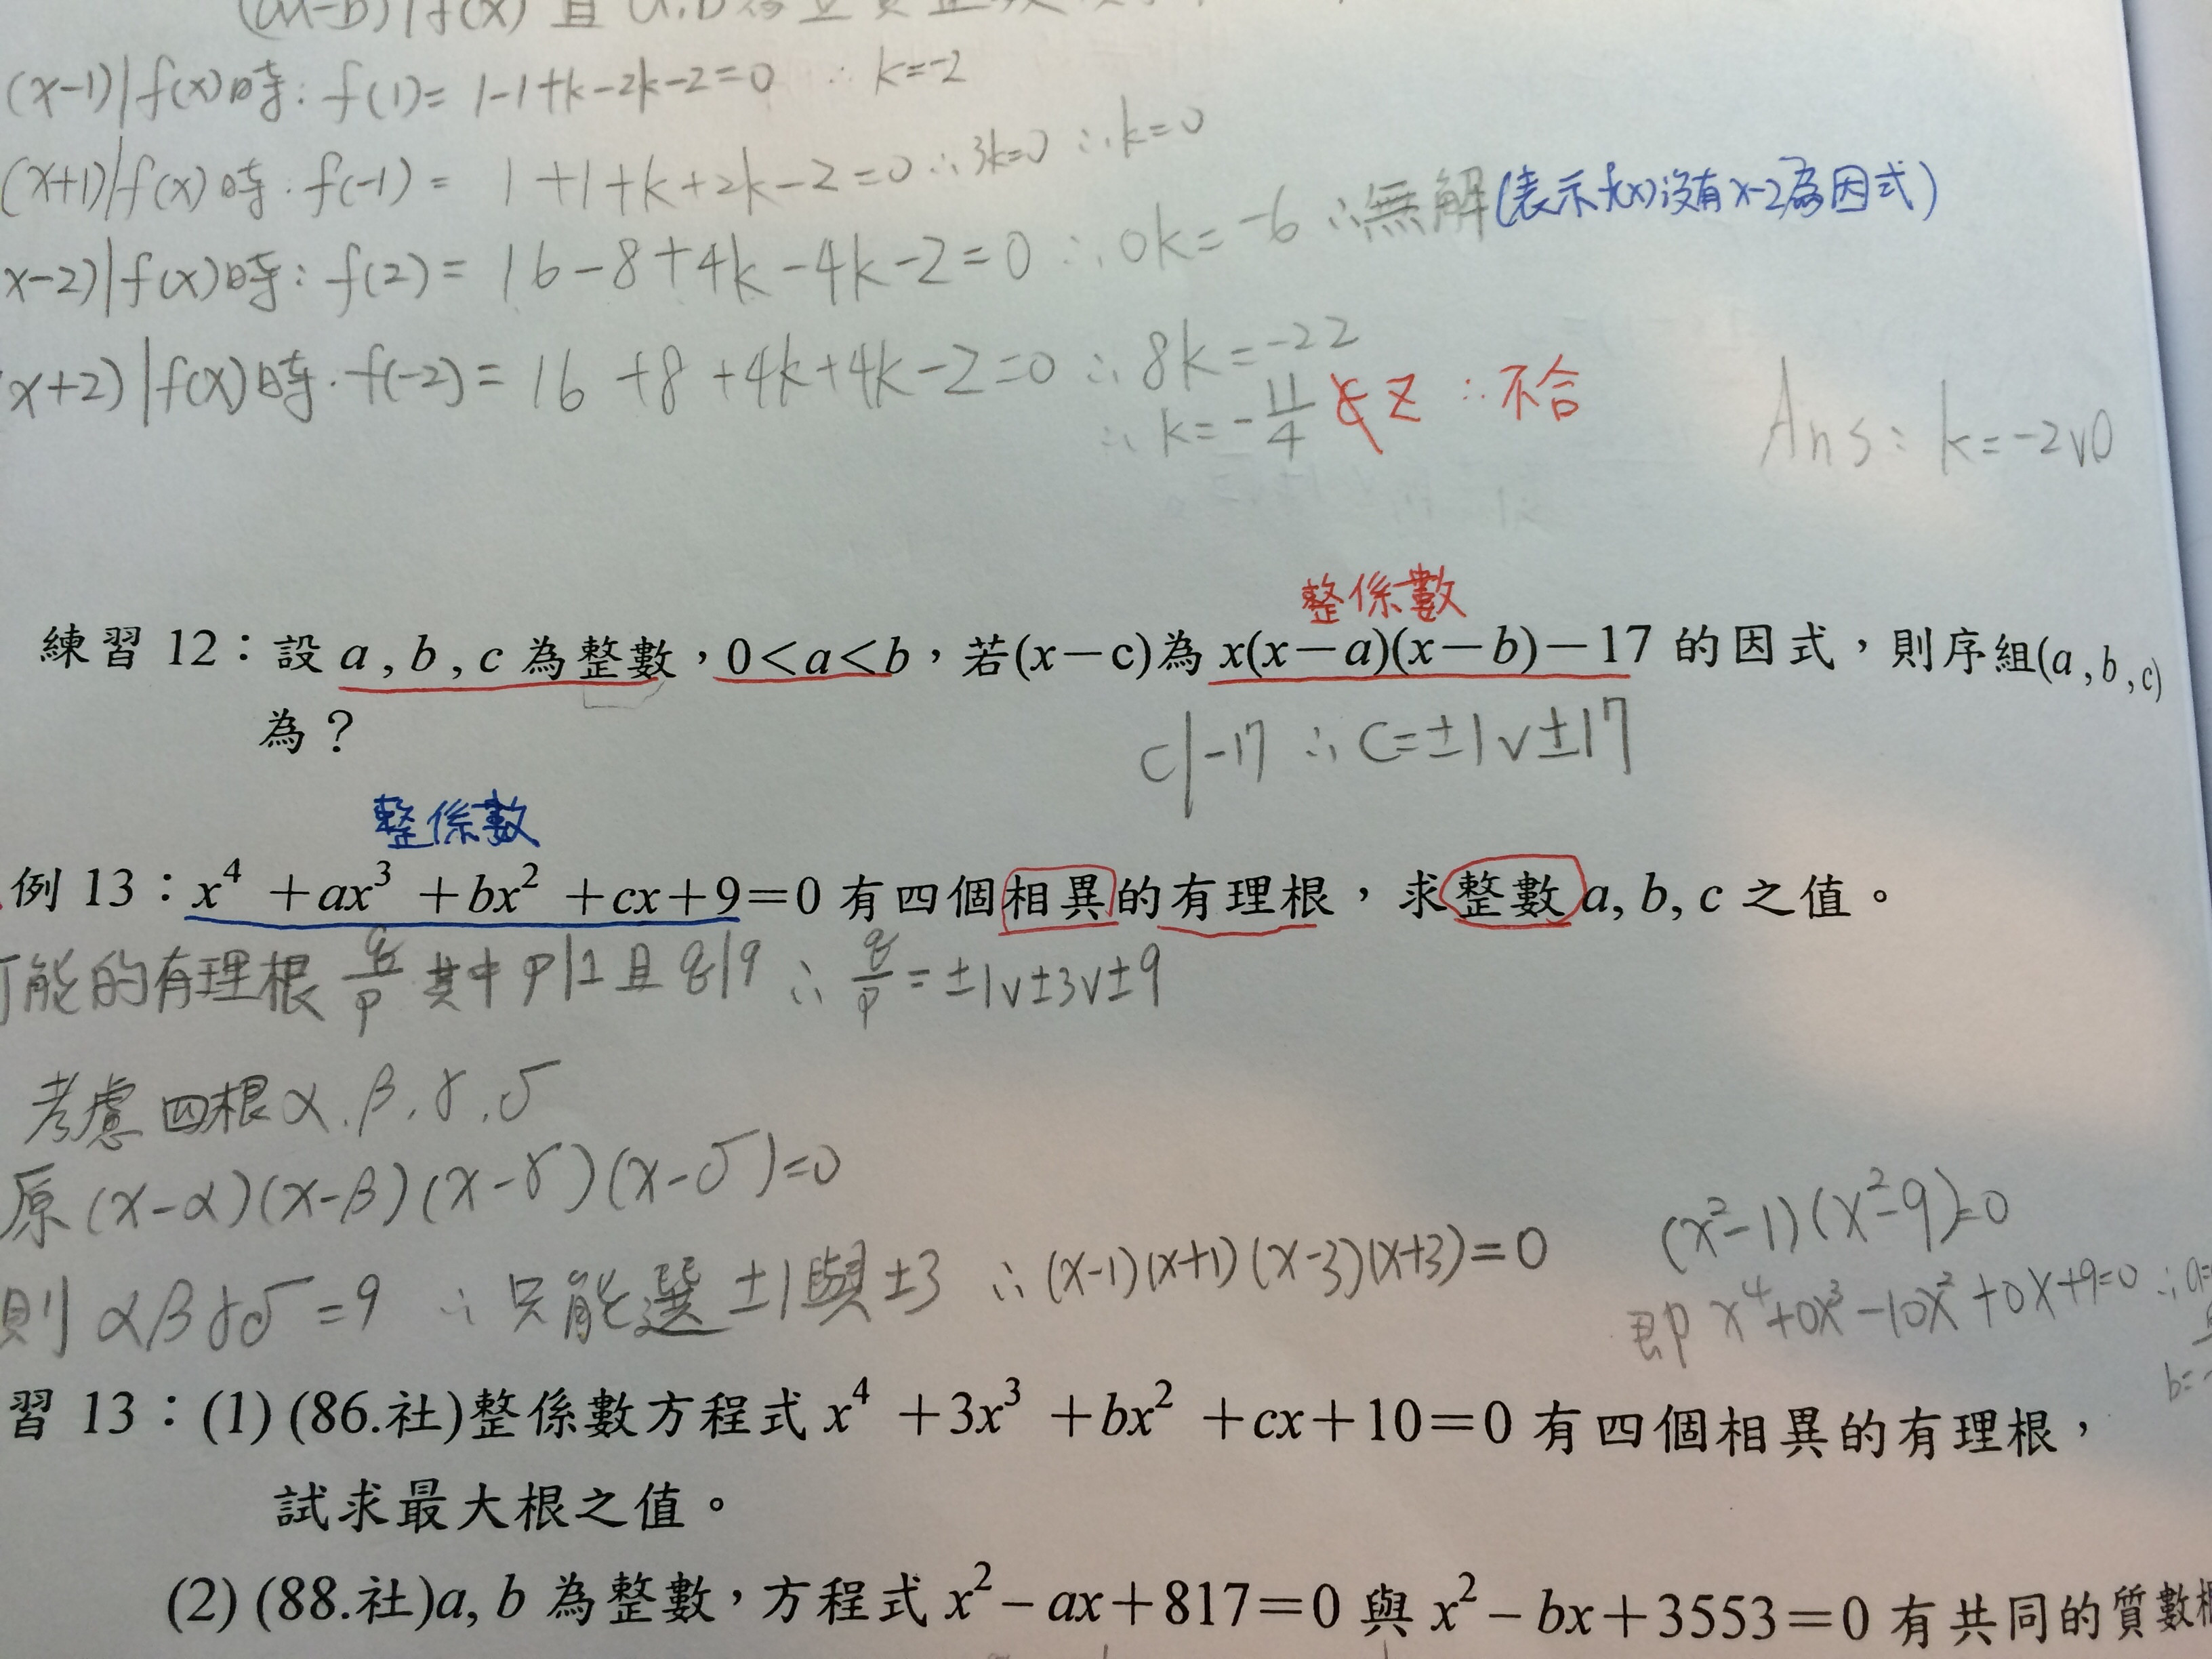 (x-1)|f(x)時: f(1)= 1-1+k-2k-2=0 ∴ k=-2
(x+1)|f(x)時: f(-1)= 1+1+k+2k-2=0 ∴3k=0 ∴k=0
x-2)|f(x)時: f(2)= 16-8+4k-4k-2=0 ∴0k=-6 ∴無解(表示f(x)沒有x-2為因式)
x+2)|f(x)時: f(-2)= 16+8+4k+4k-2=0 ∴8k=-22
∴k=-11/4 ∉ Z ∴不合
Ans: k=-2∨0
整係數
練習 12：設 a , b , c 為整數，0<a<b，若(x－c)為 x(x－a)(x－b)－17 的因式，則序組(a , b , c)
為？
c|-17 ∴ c=±1∨±17
整係數
例 13：x⁴ +ax³ +bx² +cx+9=0 有四個相異的有理根，求整數 a, b, c 之值。
能的有理根 q/p 其中 p|1 且 q|9 ∴ q/p=±1∨±3∨±9
考慮四根α.β.γ.δ
原(x-α)(x-β)(x-γ)(x-δ)=0
則 αβγδ=9 ∴只能選±1與±3 ∴(x-1)(x+1)(x-3)(x+3)=0
(x²-1)(x²-9)=0
即 x⁴+0x³-10x²+0x+9=0 ∴a=
b=-
習 13：(1) (86.社)整係數方程式 x⁴ +3x³ +bx² +cx+10=0 有四個相異的有理根，
試求最大根之值。
(2) (88.社)a, b 為整數，方程式 x²－ax+817=0 與 x²－bx+3553=0 有共同的質數根